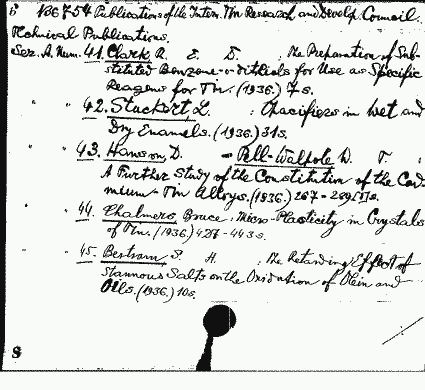 b 186754 Publications of the Intern. Tin Research and Develop. Council.
Technical Publications.
Ser. A. Num. 41. Clark, R. E. D. : The Preparation of Sub-
stituted Benzene-o-dithiols for Use as Specific
Reagens for Tin. (1936.) 7 s.
" " 42. Stuckert, L. : Opacifiers in Wet and
Dry Enamels. (1936.) 31 s.
" " 43. Hanson, D. – Pell-Walpole W. T. :
A Further Study of the Constitution of the Cad-
mium-Tin Alloys. (1936.) 267-289 s.
" 44. Chalmers, Bruce : Micro-Plasticity in Crystals
of Tin. (1936) 427-443 s.
" 45. Bertram S. H. : The Retarding Effect of
Stannous Salts on the Oxidation of Olein and
Oils. (1936.) 10 s.
S